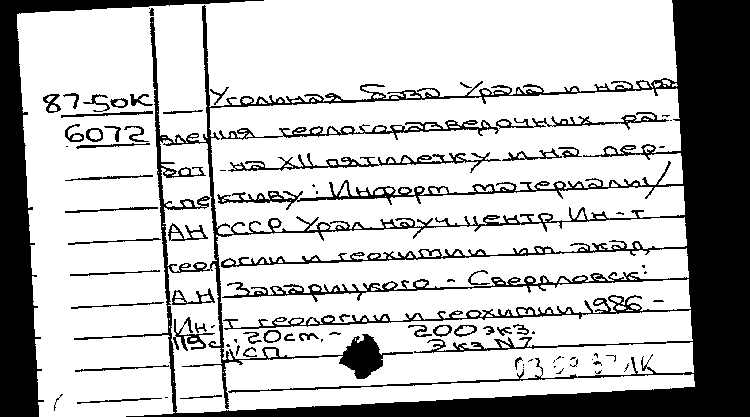 87-50К Угольная база Урала и напра
6072 вления геологоразведочных ра-
бот на XII пятилетку и на пер-
спективу: Информ. материалы/
АН СССР. Урал. науч. центр, Ин-т
геологии и геохимии им. акад.
А.Н Заварицкого. - Свердловск:
Ин-т геологии и геохимии, 1986. -
119 с.; 20 см. - 200 экз.
ДСП. Экз N7